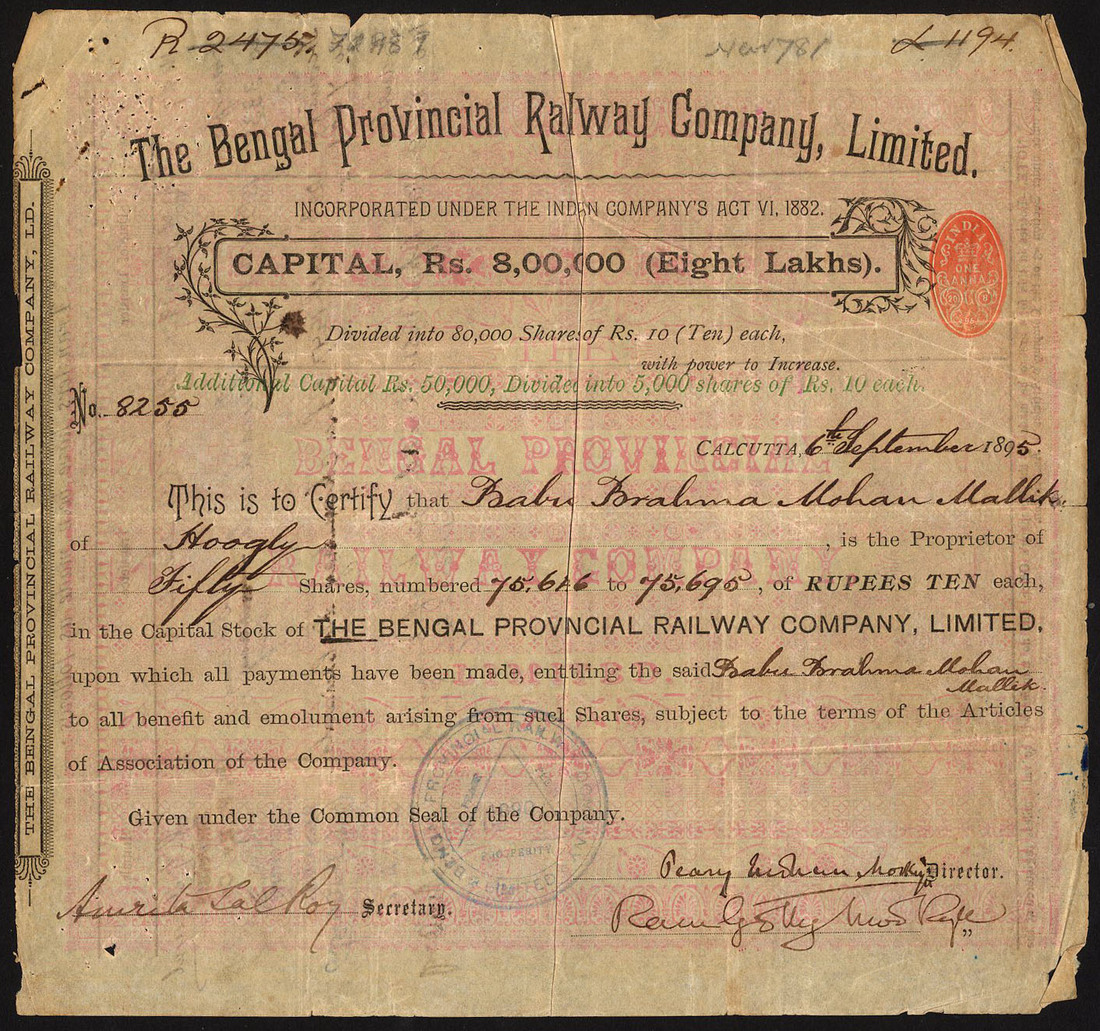 R 2475
L 1194.
The Bengal Provincial Railway Company, Limited.
INCORPORATED UNDER THE INDIAN COMPANY'S ACT VI, 1882.
CAPITAL, Rs. 8,00,000 (Eight Lakhs).
INDIA
ONE
ANNA
Divided into 80,000 Shares of Rs. 10 (Ten) each,
with power to Increase.
Additional Capital Rs. 50,000, Divided into 5,000 shares of Rs. 10 each.
No. 8255
CALCUTTA, 6th September 1895.
This is to Certify that Babu Brahma Mohan Mallik
of Hoogly, is the Proprietor of
Fifty Shares, numbered 75,646 to 75,695, of RUPEES TEN each,
in the Capital Stock of THE BENGAL PROVNCIAL RAILWAY COMPANY, LIMITED,
upon which all payments have been made, entitling the said Babu Brahma Mohan
Mallik.
to all benefit and emolument arising from such Shares, subject to the terms of the Articles
of Association of the Company.
Given under the Common Seal of the Company.
Peary Mohan Director.
Amrita Lal Roy Secretary.
„
THE BENGAL PROVINCIAL RAILWAY COMPANY, LD.
BENGAL PROVINCIAL
RAILWAY COMPANY